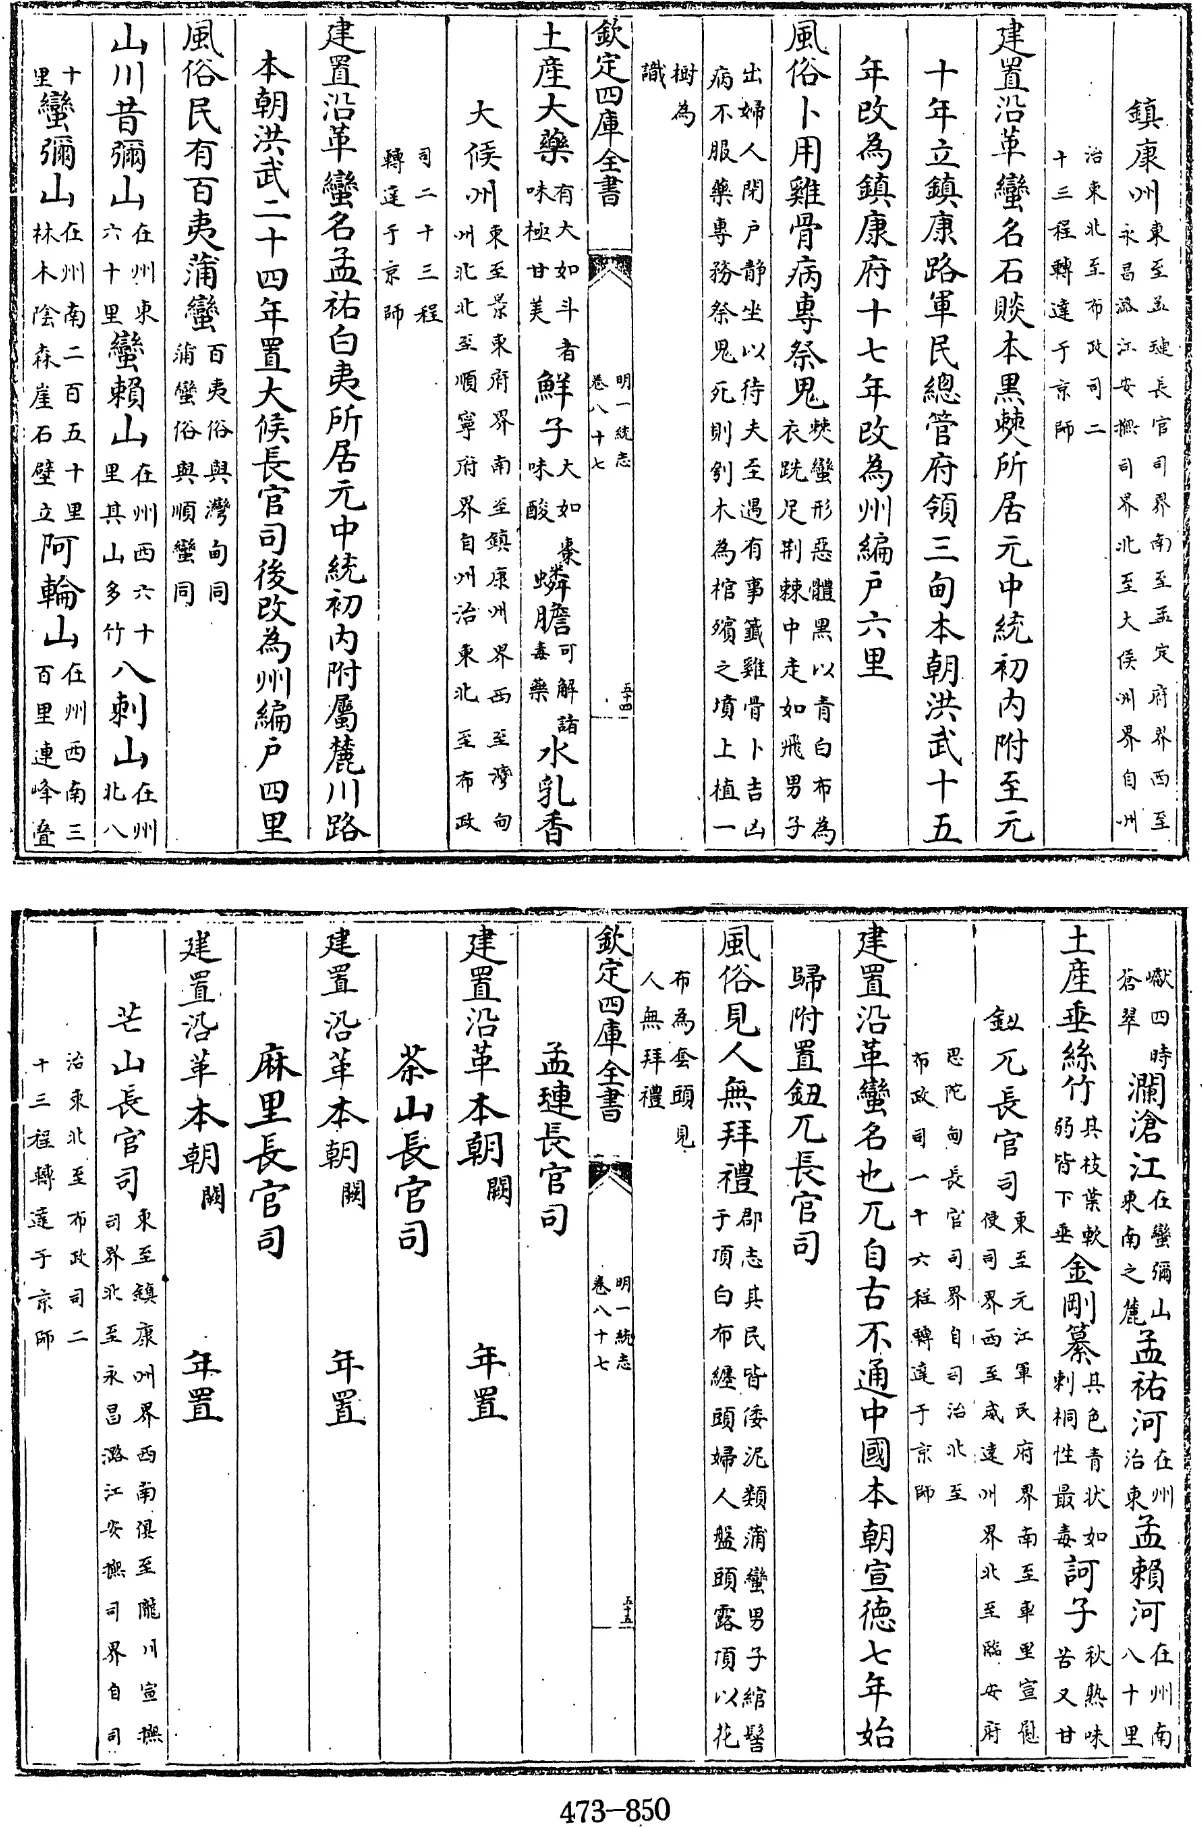 鎮康州東至孟璉長官司界南至孟定府界西至永昌潞江安撫司界北至大侯州界自州
治東北至布政司二十三程轉達于京師
建置沿革蠻名石賧本黑僰所居元中統初内附至元
十年立鎮康路軍民總管府領三甸本朝洪武十五
年改為鎮康府十七年改為州編户六里
風俗卜用雞骨病專祭鬼僰蠻形惡體黑以青白布為衣跣足荆棘中走如飛男子
出婦人閉户静坐以待夫至遇有事籤雞骨卜吉凶病不服藥專務祭鬼死則刳木為棺殯之墳上植一
樹為識
欽定四庫全書 明一統志卷八十七 五十四
土産大藥有大如斗者味極甘美鮮子大如棗味酸蟒膽可解諸毒藥水乳香
大候州東至景東府界南至鎮康州界西至灣甸州北北至順寧府界自州治東北至布政
司二十三程轉達于京師
建置沿革蠻名孟祐白夷所居元中統初内附屬麓川路
本朝洪武二十四年置大候長官司後改為州編户四里
風俗民有百夷蒲蠻百夷俗與灣甸同蒲蠻俗與順蠻同
山川昔彌山在州東六十里蠻賴山在州西六十里其山多竹八刺山在州北八
十里蠻彌山在州南二百五十里林木陰森崖石壁立阿輪山在州西南三百里連峰叠
巘四時蒼翠瀾滄江在蠻彌山東南之麓孟祐河在州治東孟賴河在州南八十里
土産垂絲竹其枝葉軟弱皆下垂金剛纂其色青状如刺桐性最毒訶子秋熟味苦又甘
鈕兀長官司東至元江軍民府界南至車里宣慰使司界西至威遠州界北至臨安府
思陀甸長官司界自司治北至布政司一十六程轉達于京師
建置沿革蠻名也兀自古不通中國本朝宣德七年始
歸附置鈕兀長官司
風俗見人無拜禮郡志其民皆倭泥類蒲蠻男子綰髻于項白布纏頭婦人盤頭露頂以花
布為套頭見人無拜禮
欽定四庫全書 明一統志卷八十七 五十五
孟璉長官司
建置沿革本朝闕 年置
茶山長官司
建置沿革本朝闕 年置
麻里長官司
建置沿革本朝闕 年置
芒山長官司東至鎮康州界西南俱至隴川宣撫司界北至永昌潞江安撫司界自司
治東北至布政司二十三程轉達于京師
473-850